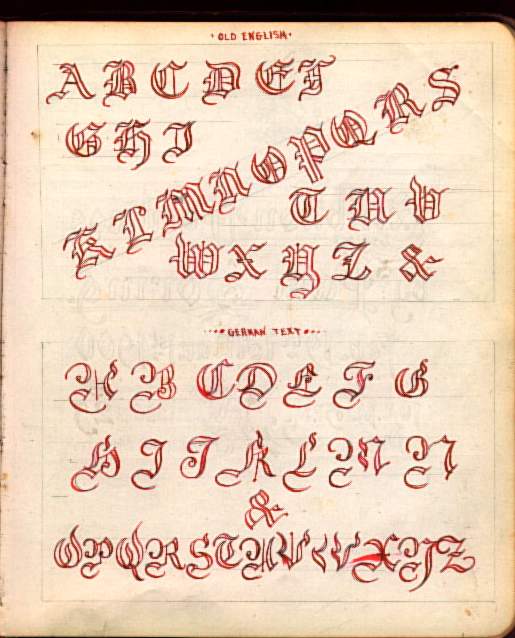 ·OLD ENGLISH·
A B C D E F
G H I
K L M N O P Q R S
T U V
W X Y Z &
····GERMAN TEXT····
A B C D E F G
H I J K L M N
&
O P Q R S T U V W X Y Z